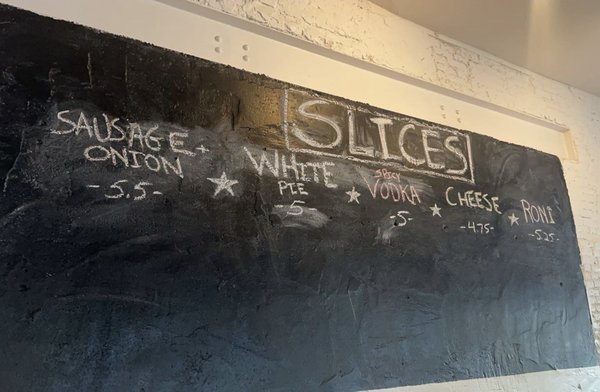 SLICES
SAUSAGE +
ONION
-5.5-
WHITE
PIE
-5-
SPICY
VODKA
-5-
CHEESE
-4.75-
RONI
-5.25-